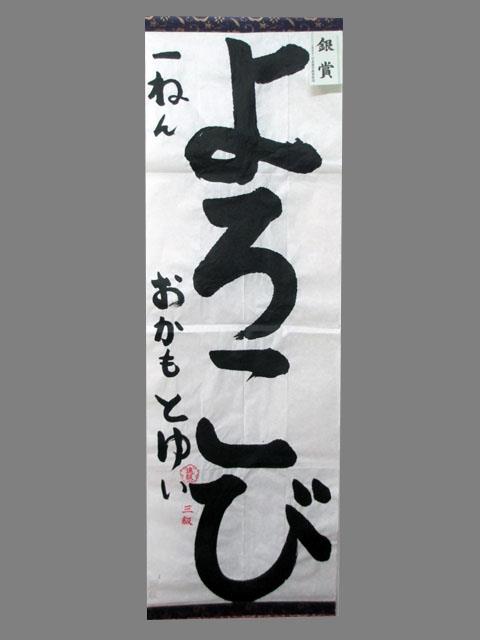 銀賞
よろこび
一ねん おかもとゆい
三級